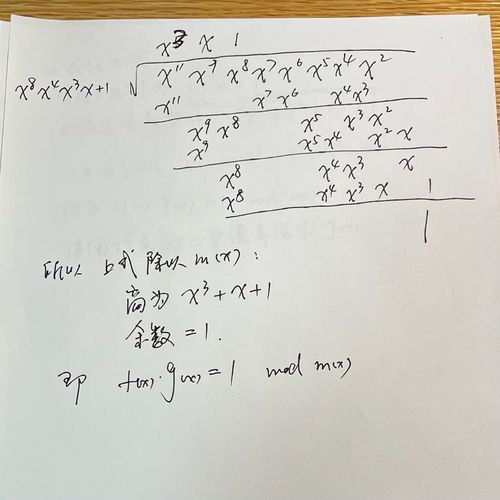 x³ x 1
x⁸x⁴x³x+1 √ x¹¹ x⁹ x⁸ x⁷ x⁶ x⁵ x⁴ x²
x¹¹ x⁷ x⁶ x⁴ x³
x⁹ x⁸ x⁵ x³ x²
x⁹ x⁵ x⁴ x² x
x⁸ x⁴ x³ x
x⁸ x⁴ x³ x 1
1
所以 上式 除以 m(x):
商为 x³+x+1
余数 = 1.
即 f(x)·g(x) = 1 mod m(x)